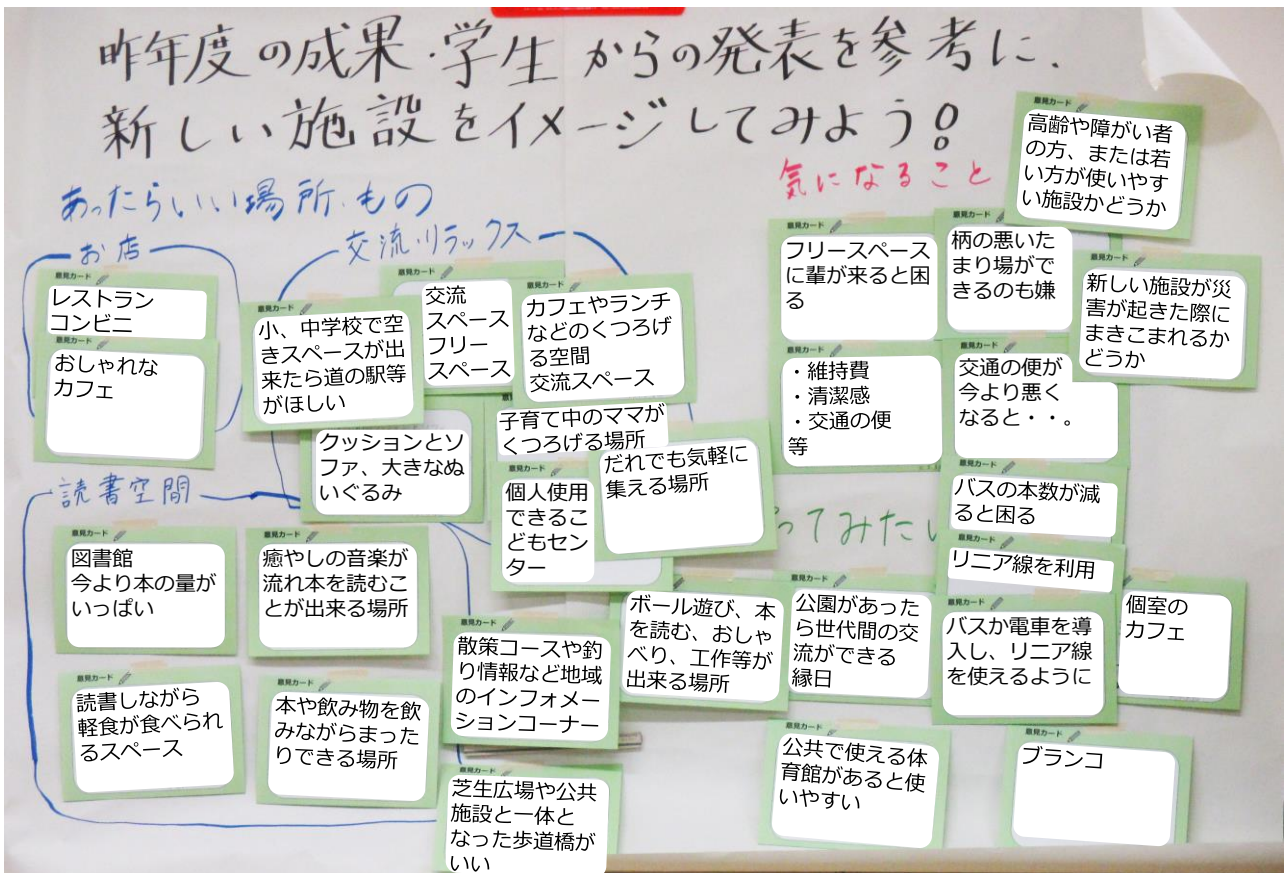 昨年度の成果・学生からの発表を参考に、
新しい施設をイメージしてみよう!
あったらいい場所・もの
お店
意見カード
レストラン
コンビニ
意見カード
おしゃれな
カフェ
交流・リラックス
意見カード
小、中学校で空
きスペースが出
来たら道の駅等
がほしい
意見カード
交流
スペース
フリー
スペース
意見カード
カフェやランチ
などのくつろげ
る空間
交流スペース
クッションとソ
ファ、大きなぬ
いぐるみ
子育て中のママが
くつろげる場所
意見カード
個人使用
できるこ
どもセン
ター
だれでも気軽に
集える場所
読書空間
意見カード
図書館
今より本の量が
いっぱい
意見カード
癒やしの音楽が
流れ本を読むこ
とが出来る場所
意見カード
読書しながら
軽食が食べられ
るスペース
意見カード
本や飲み物を飲
みながらまった
りできる場所
意見カード
散策コースや釣
り情報など地域
のインフォメー
ションコーナー
意見カード
芝生広場や公共
施設と一体と
なった歩道橋が
いい
気になること
意見カード
高齢や障がい者
の方、または若
い方が使いやす
い施設かどうか
意見カード
フリースペース
に輩が来ると困
る
意見カード
柄の悪いた
まり場がで
きるのも嫌
意見カード
新しい施設が災
害が起きた際に
まきこまれるか
どうか
意見カード
・維持費
・清潔感
・交通の便
等
意見カード
交通の便が
今より悪く
なると・・。
意見カード
バスの本数が減
ると困る
ってみたい
意見カード
リニア線を利用
意見カード
バスか電車を導
入し、リニア線
を使えるように
意見カード
個室の
カフェ
意見カード
ボール遊び、本
を読む、おしゃ
べり、工作等が
出来る場所
意見カード
公園があった
ら世代間の交
流ができる
縁日
意見カード
公共で使える体
育館があると使
いやすい
意見カード
ブランコ